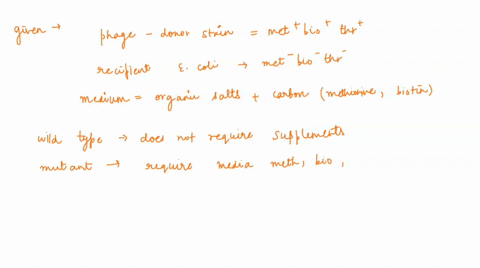 given → phage - donor strain = met⁺ bio⁺ thr⁺
recipient E. coli → met⁻ bio⁻ thr⁻
medium = organic salts + carbon (methionine, biotin)
wild type → does not require supplements
mutant → require media meth, bio,